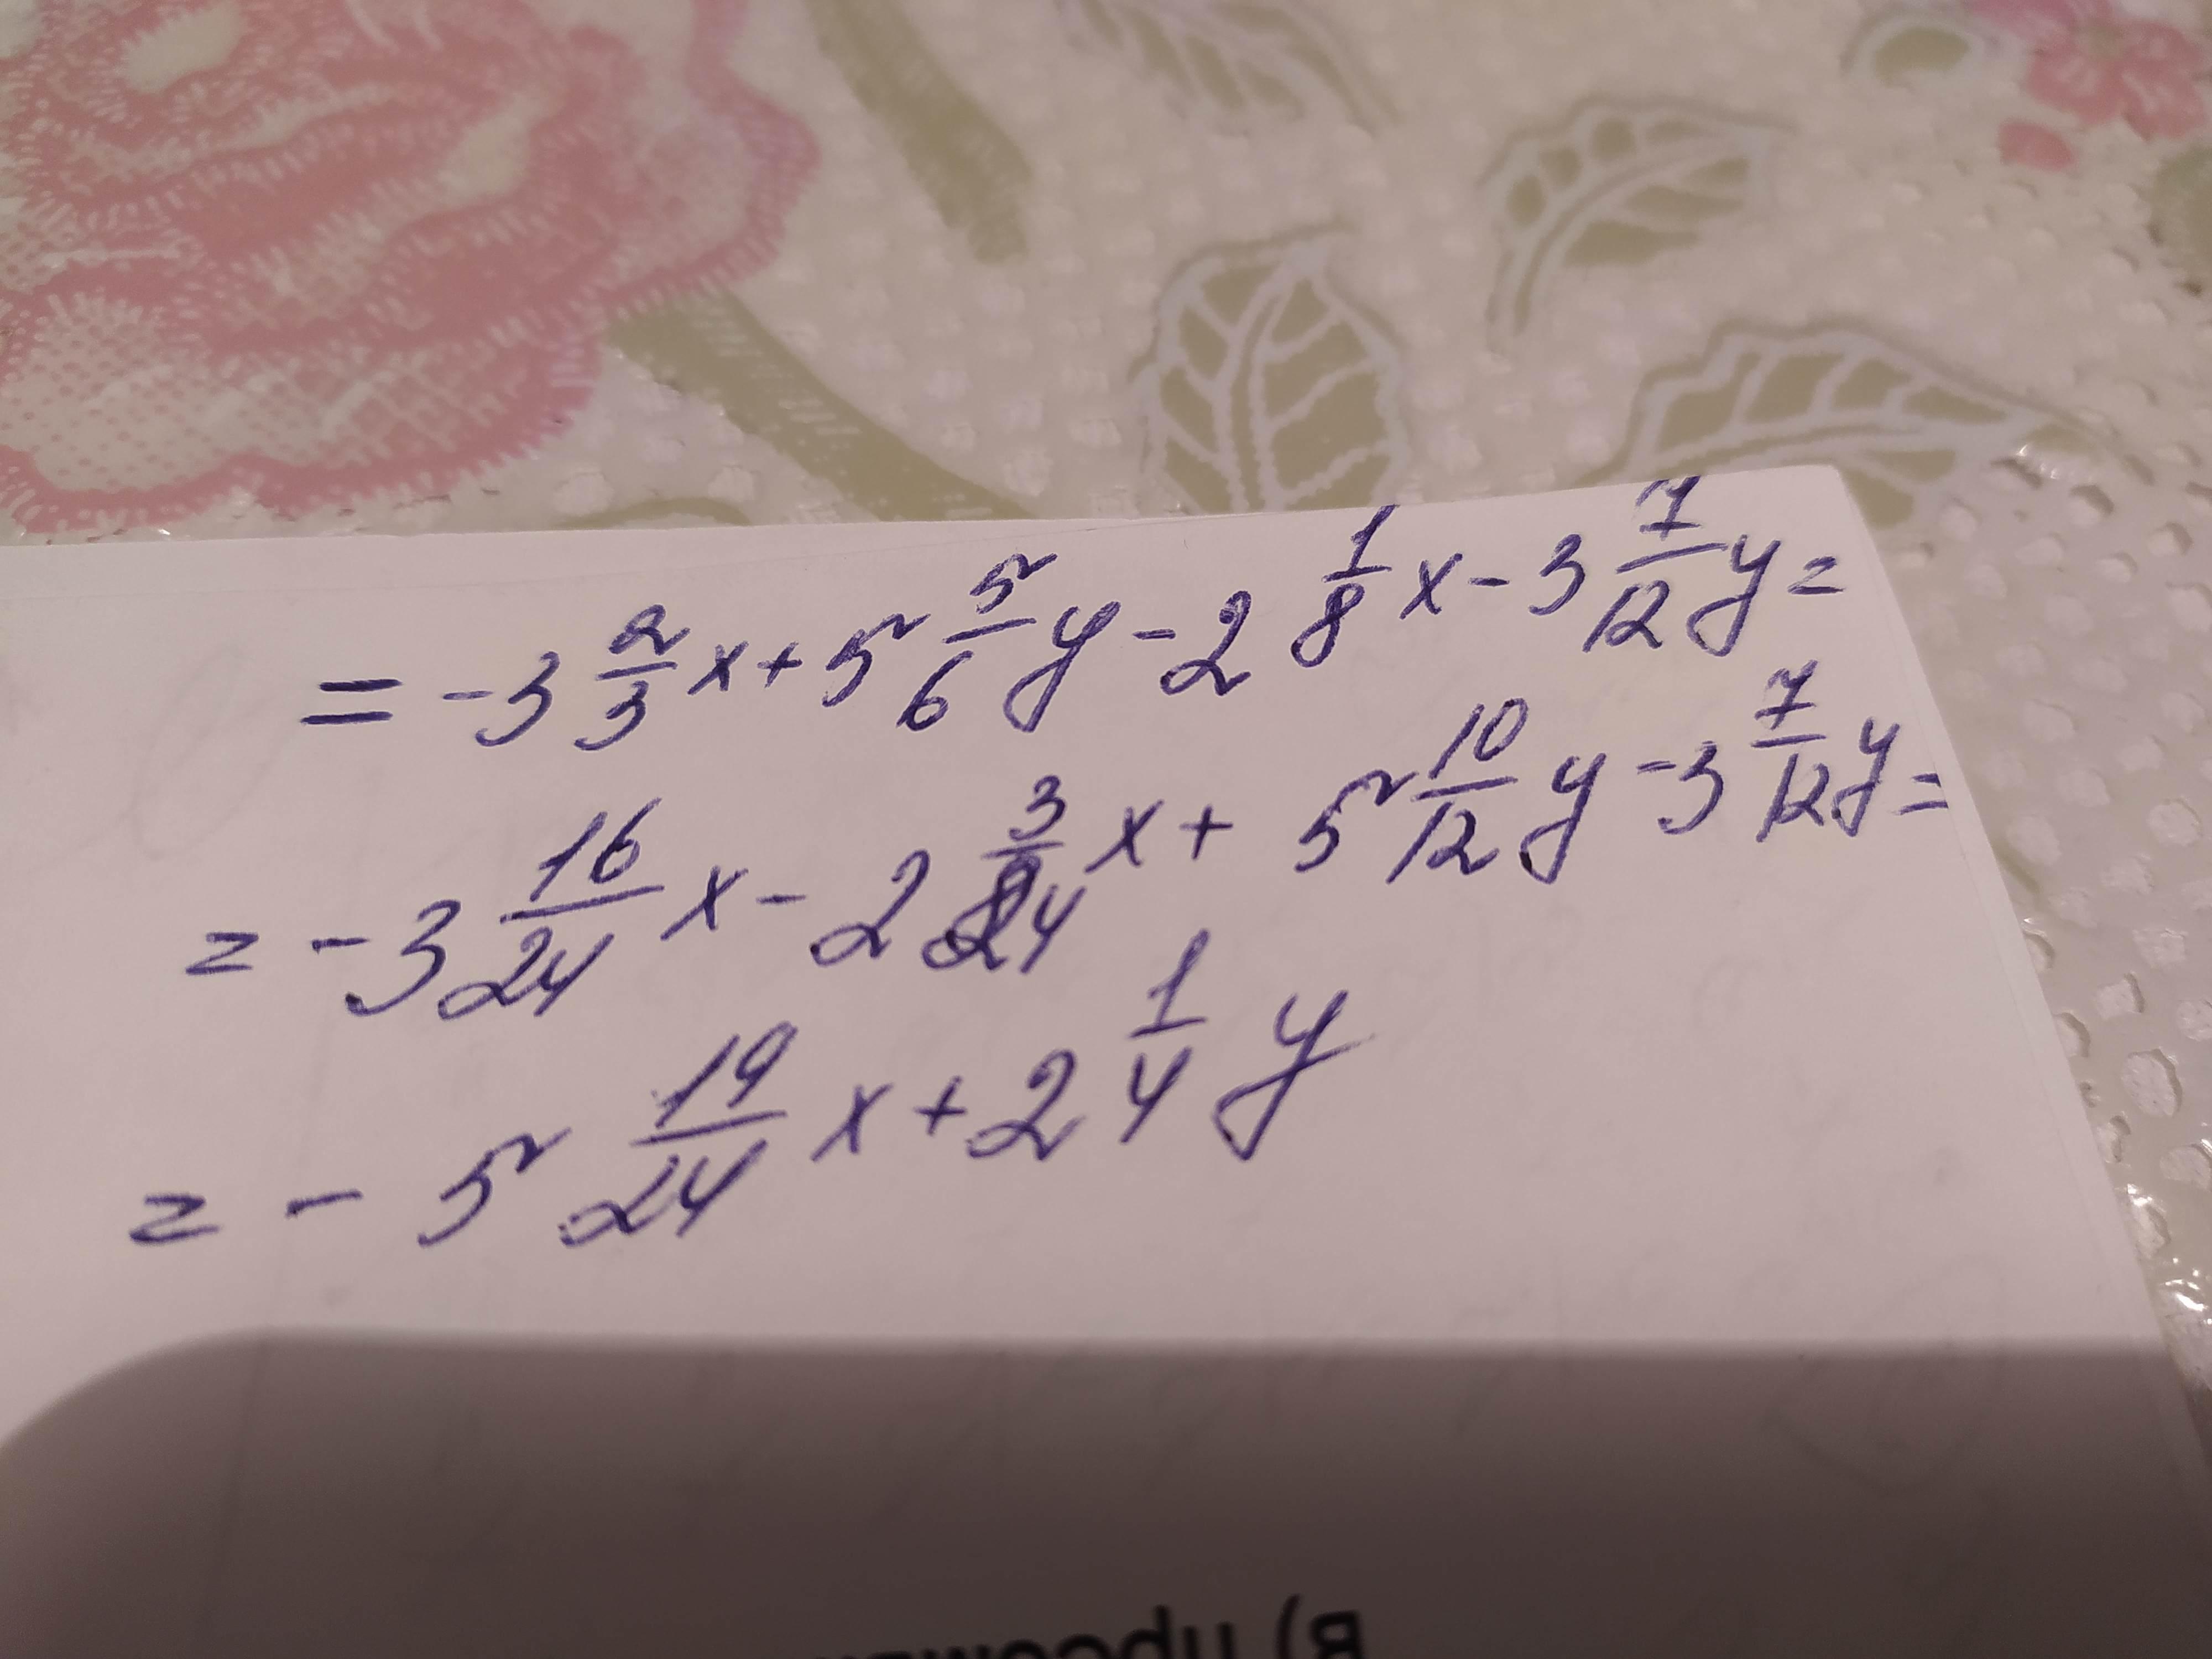 = -3 2/3 x + 5 5/6 y - 2 1/8 x - 3 7/12 y =
= -3 16/24 x - 2 3/24 x + 5 10/12 y - 3 7/12 y =
= - 5 19/24 x + 2 1/4 y
в)